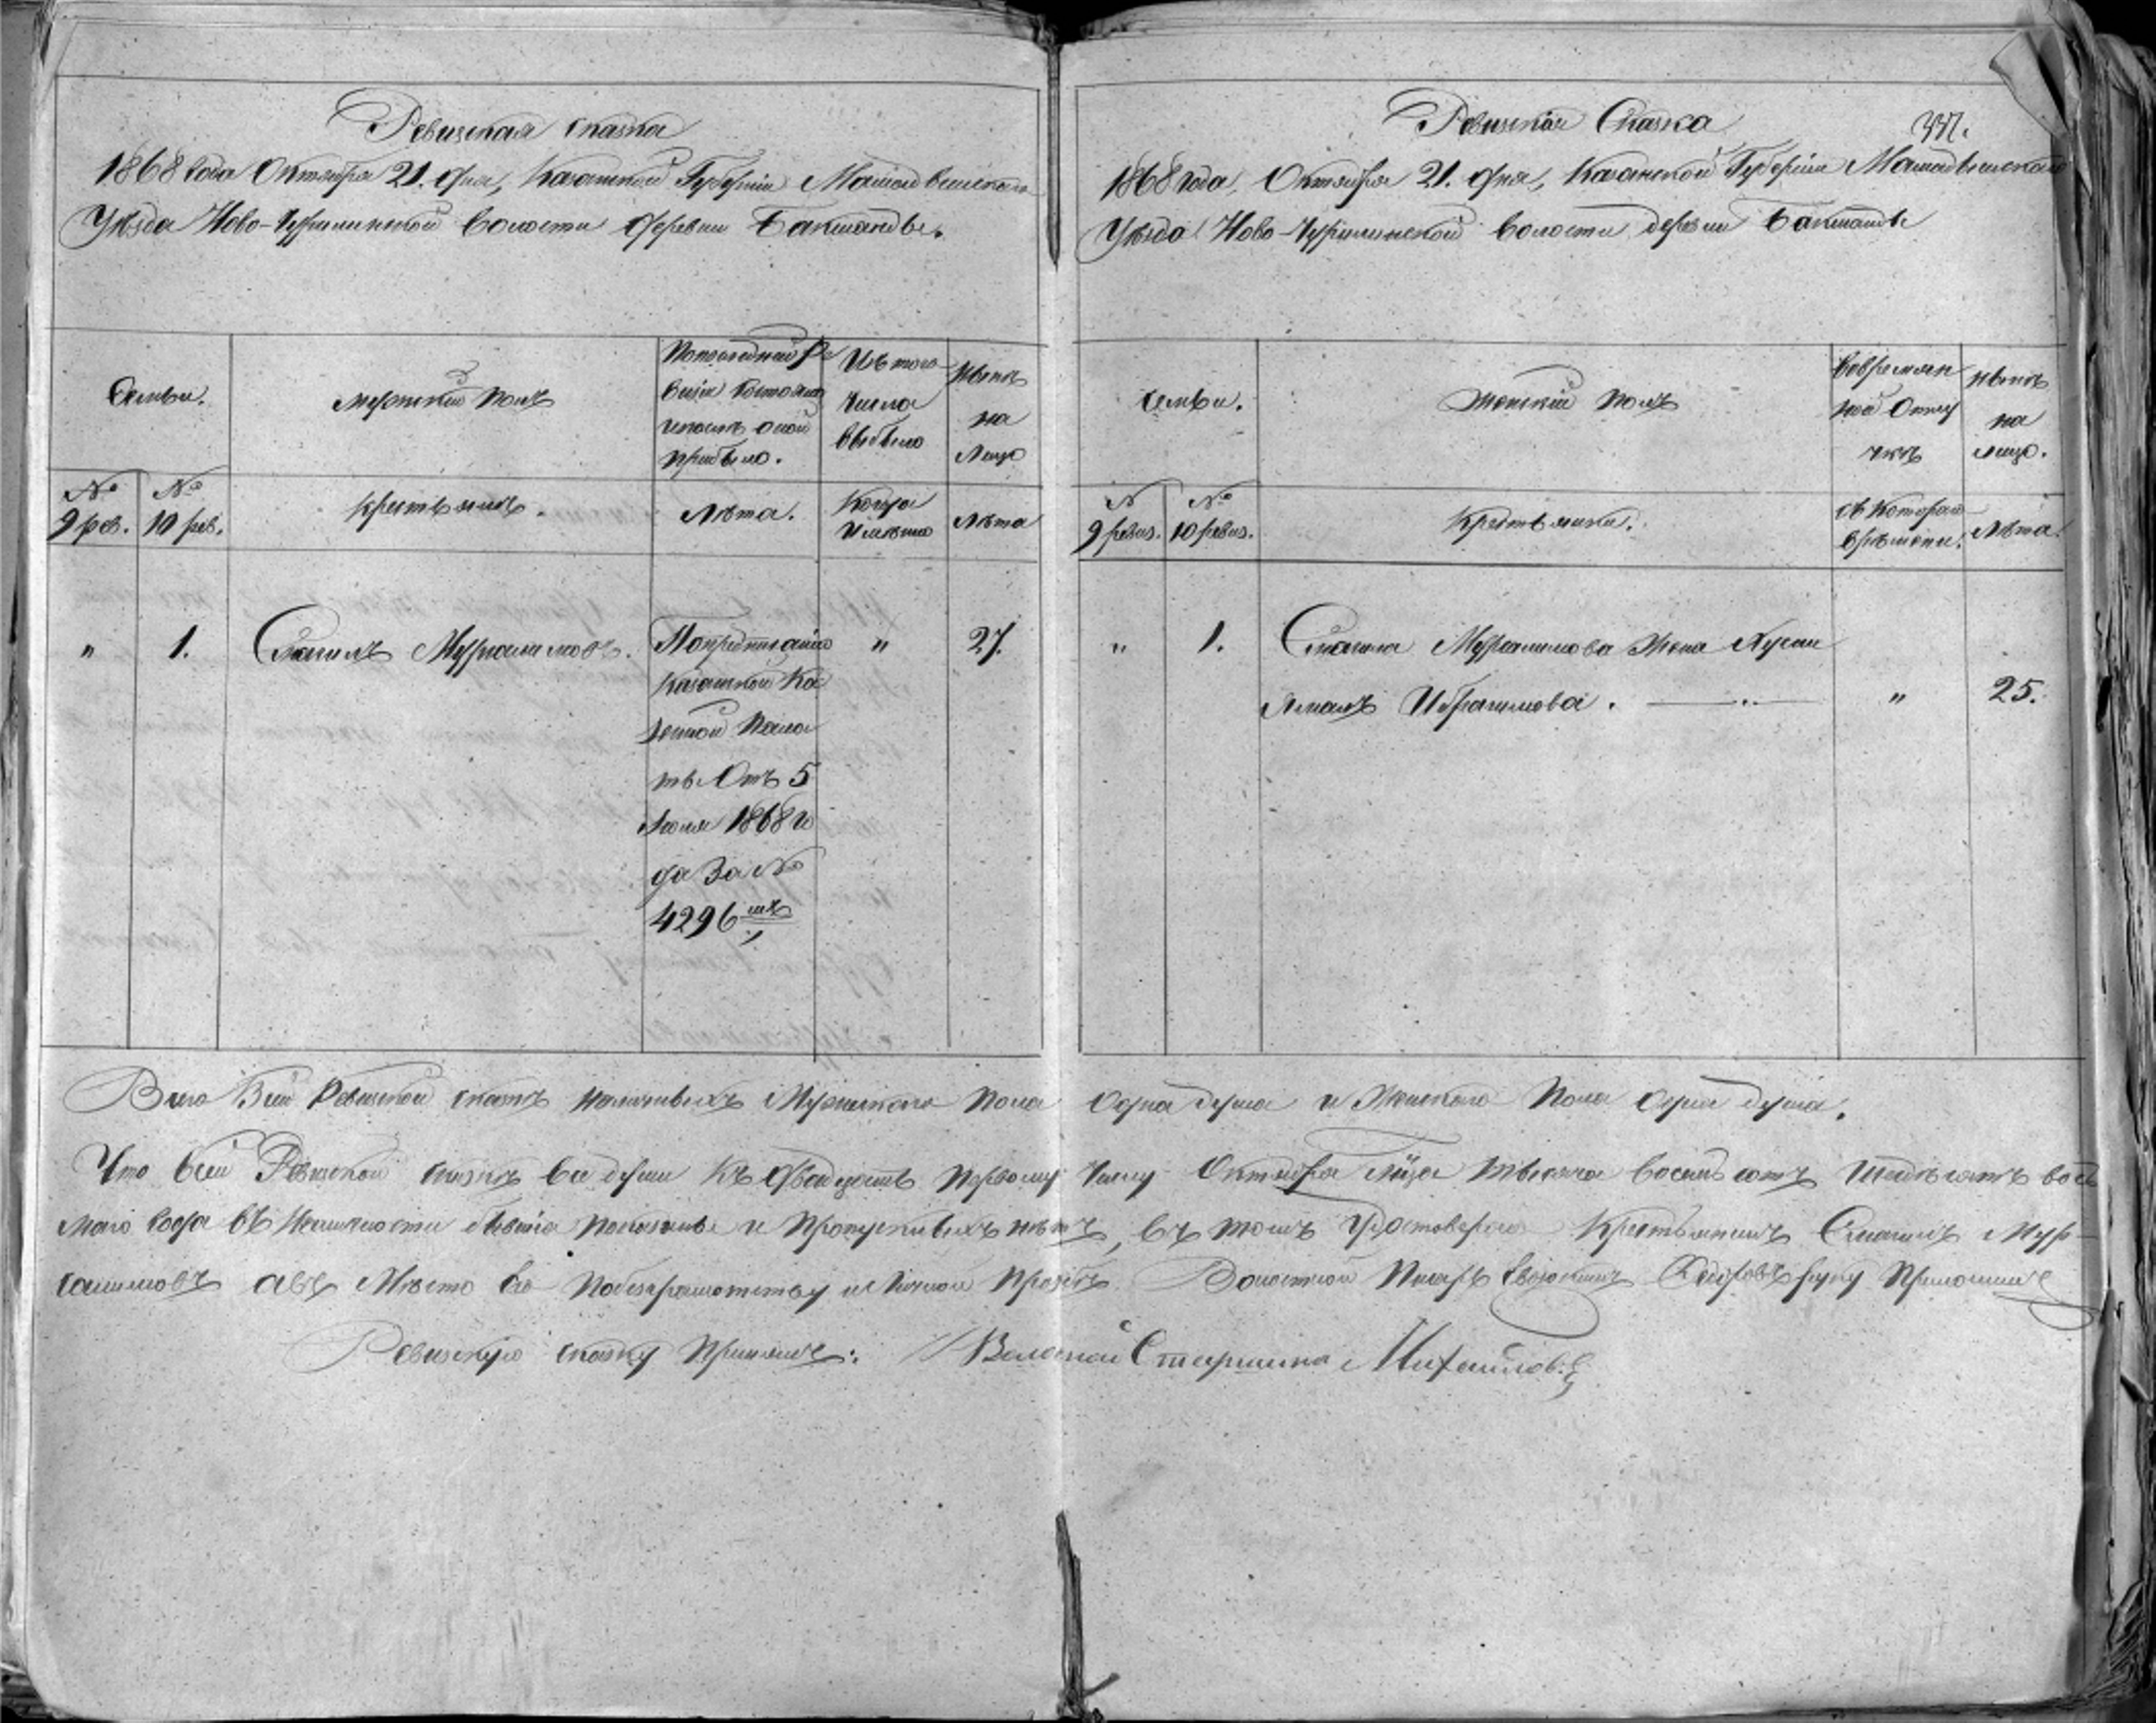 Ревизская сказка
1868 года Октября 21. дня, Казанской Губерніи Мамадышскаго
Уѣзда Ново-Чурилинской волости деревни Бакшанды.
Семьи.
мужский полъ
По последней ре
визіи состояло
и после оной
прибыло.
Изъ того
числа
выбыло
Нынѣ
на
лицо
№
9 рев.
№
10 рев.
Крестьянъ.
Лѣта.
Когда
Именно
Лѣта
"
1.
Смагилъ Мурсалимовъ.
По предписанію
Казанской Ка
зенной Пала
ты Отъ 5
Іюля 1868 го
да За №
4296 мъ
"
27.
Ревизская Сказка
1868 года, Октября 21. дня, Казанской Губерніи Мамадышскаго
Уѣзда Ново-Чурилинской волости деревни Бакшанды
Семьи.
Женскій полъ
Во времян
ной Отлу
чкѣ
Нынѣ
на
лицо.
№
9 ревиз.
№
10 ревиз.
Крестьянки.
съ Котораго
врѣмени.
Лѣта.
"
1.
Смагила Мурсалимова Жена
Ибрагимова.
"
25.
Всего Всей Ревизской сказкѣ наличныхъ Мужескаго Пола Одна душа и Женскаго Пола Одна душа.
Что всей Ревизской сказкѣ все души Къ двадцать Первому Числу Октября мѣсяца тысяча восемь сотъ Шесдѣсятъ вось
маго года въ Наличности бывшіе показаны и Пропускныхъ нѣтъ, въ томъ Удостоверяю Крестьянинъ Смагилъ Мур-
салимовъ а въ Мѣсто Его По безграмотству и Личной Прозбѣ Волостной Писарь Федоровъ руку Приложилъ
Ревизскую сказку Принялъ: Волосной Старшина Михайловъ